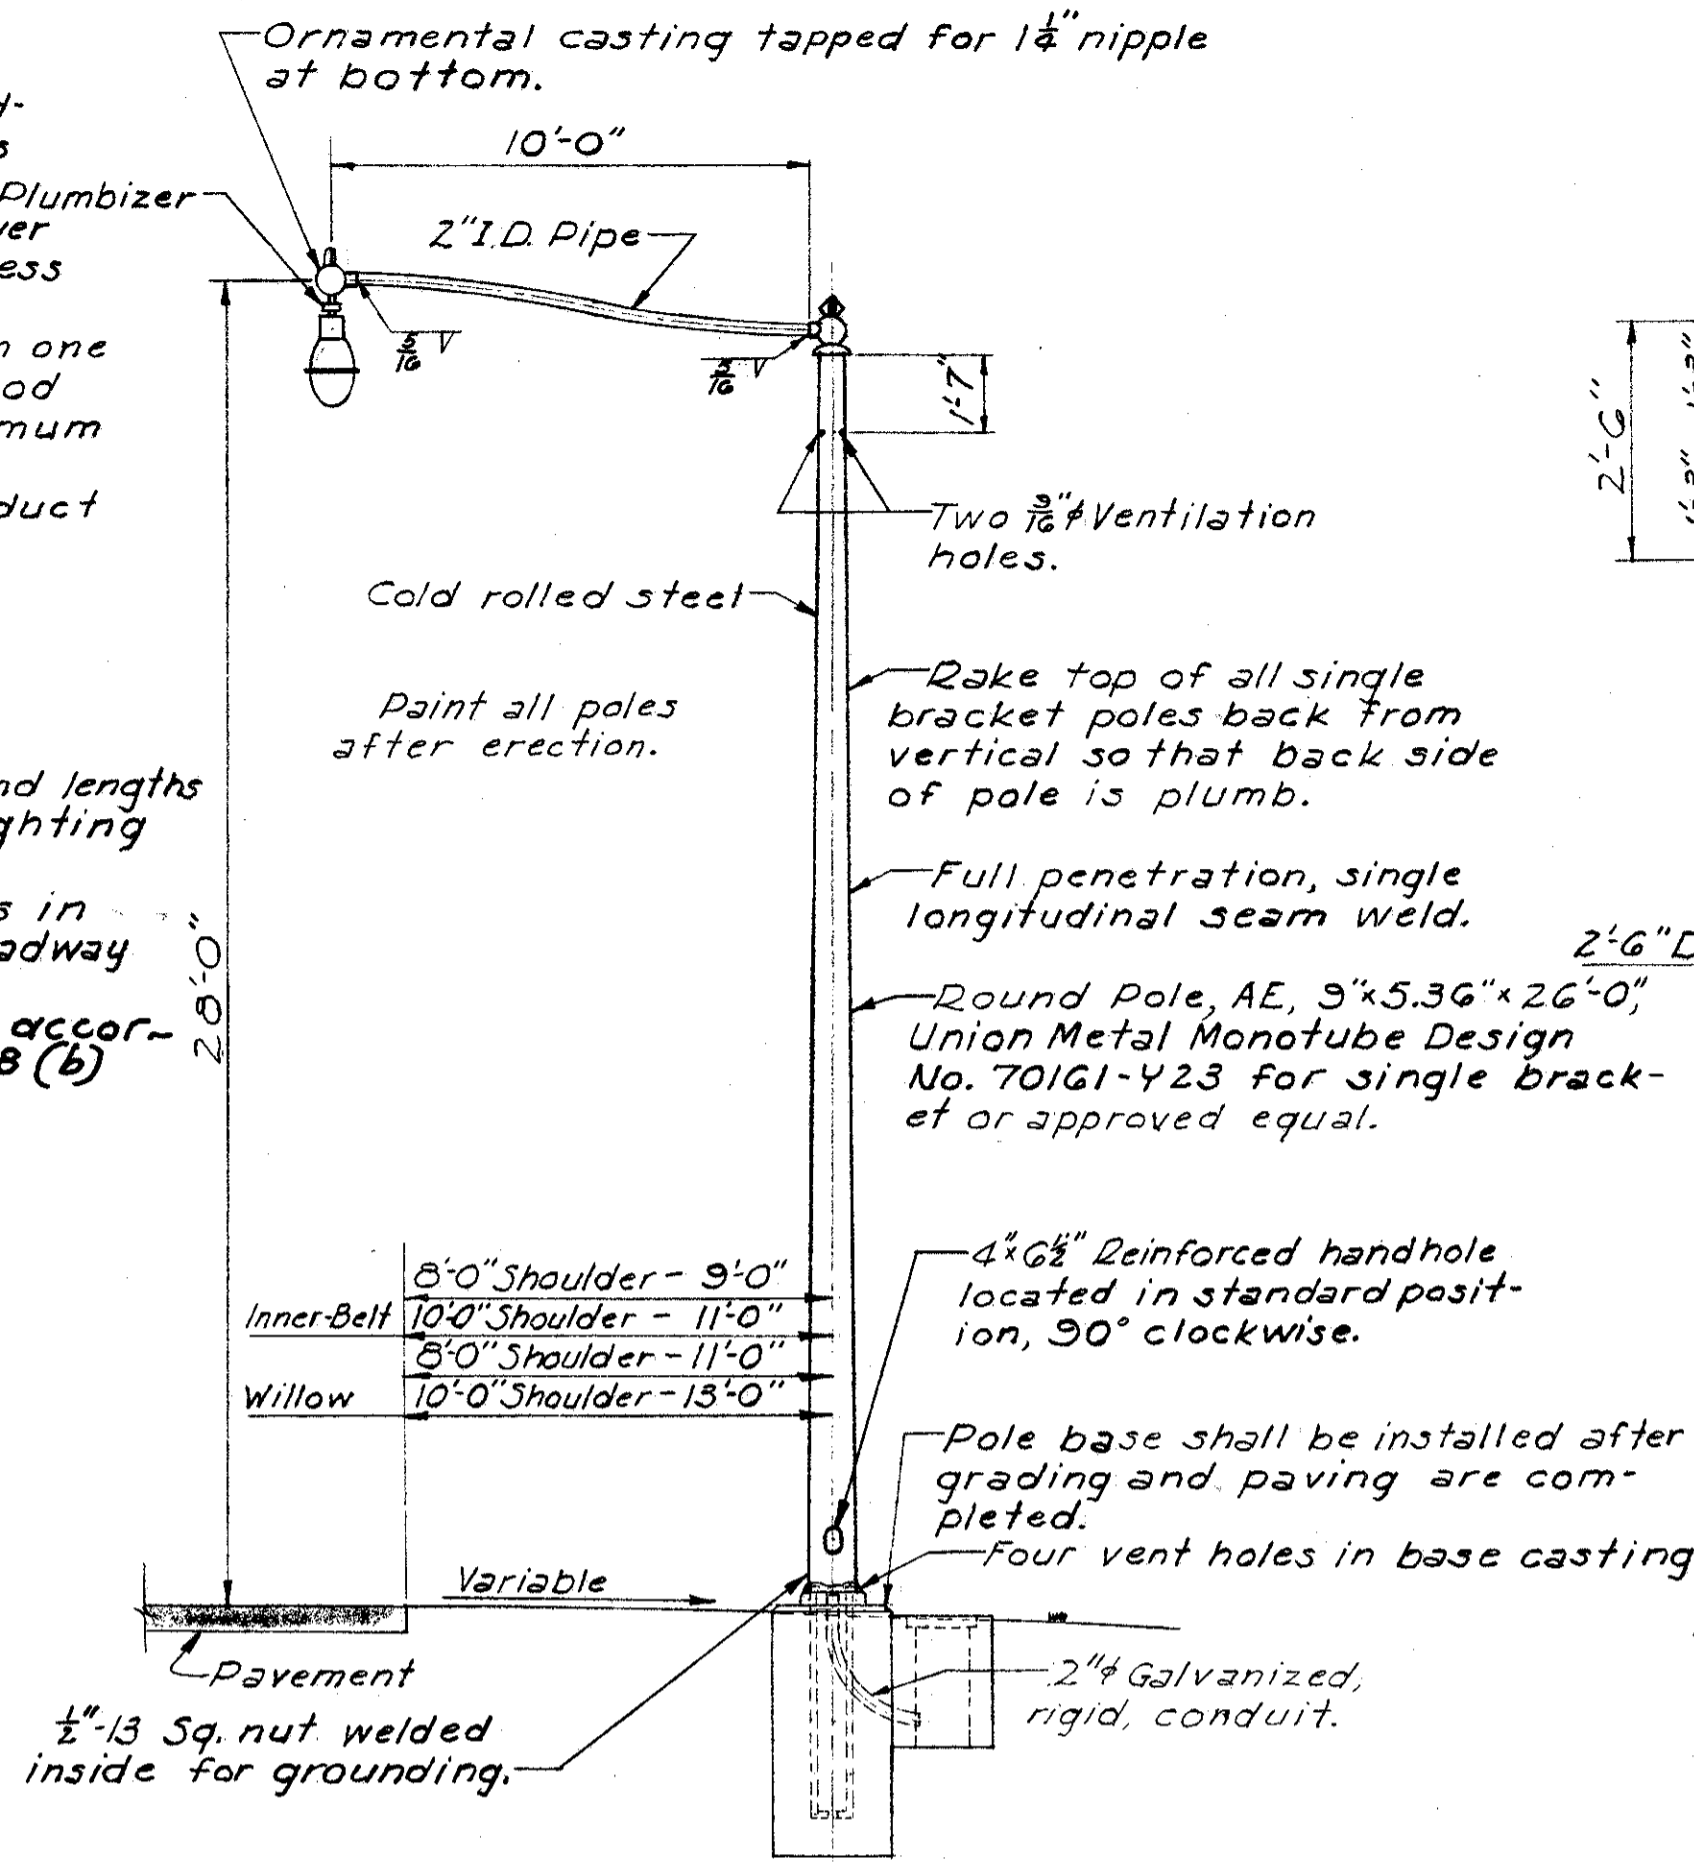 Ornamental casting tapped for 1 1/4" nipple
at bottom.
10'-0"
Plumbizer
2" I.D. Pipe
5/16 V
5/16 V
1'-7"
2'-6"
Two 9/16" ϕ Ventilation
holes.
Cold rolled steel
Paint all poles
after erection.
Rake top of all single
bracket poles back from
vertical so that back side
of pole is plumb.
Full penetration, single
longitudinal seam weld.
2'-6" D
Round Pole, AE, 9"x5.36"x26'-0",
Union Metal Monotube Design
No. 70161-Y23 for single brack-
et or approved equal.
28'-0"
one
duct
lengths
in
accor-
8 (b)
8'-0" Shoulder - 9'-0"
Inner-Belt 10'-0" Shoulder - 11'-0"
8'-0" Shoulder - 11'-0"
Willow 10'-0" Shoulder - 13'-0"
4"x6 1/2" Reinforced handhole
located in standard posit-
ion, 90° clockwise.
Pole base shall be installed after
grading and paving are com-
pleted.
Four vent holes in base casting
Variable
Pavement
1/2"-13 Sq. nut welded
inside for grounding.
2" ϕ Galvanized,
rigid, conduit.